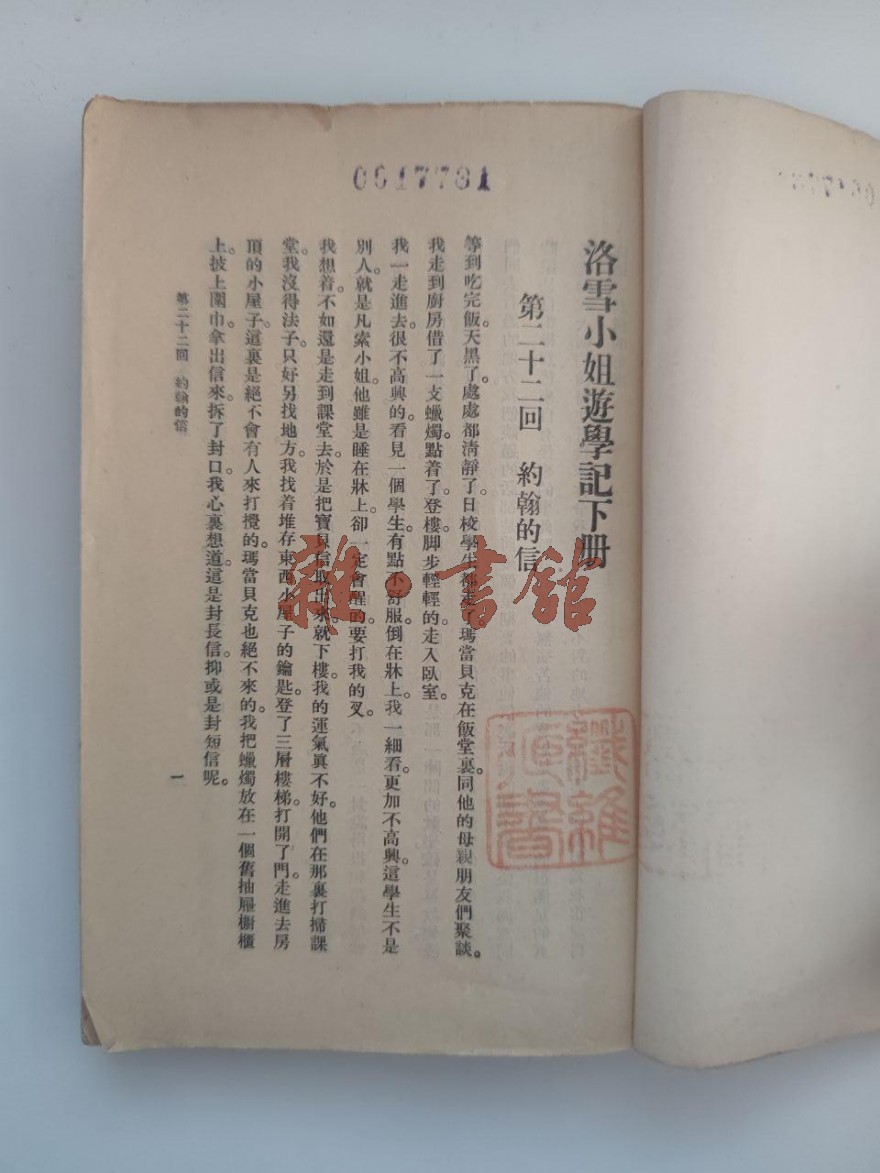 0617731
洛雪小姐遊學記下册
第二十二回　約翰的信
等到吃完飯。天黑了。處處都淸靜了。日校學生都走了。瑪當貝克在飯堂裏。同他的母親朋友們聚談。
我走到廚房借了一支蠟燭。點着了。登樓。脚步輕輕的走入臥室。
我一走進去。很不高興的。看見一個學生。有點不舒服。倒在牀上。我一細看。更加不高興。這學生不是
別人。就是凡索小姐。他雖是睡在牀上。卻一定會醒的。要打我的叉。
我想着。不如還是走到課堂去。於是把寶貝信取出來。就下樓。我的運氣眞不好。他們在那裏打掃課
堂。我沒得法子。只好另找地方。我找着堆存東西小屋子的鑰匙。登了三層樓梯。打開了門。走進去房
頂的小屋子。這裏是絕不會有人來打攪的。瑪當貝克也絕不來的。我把蠟燭放在一個舊抽屜櫥櫃
上。披上圍巾。拿出信來。拆了封口。我心裏想道。這是封長信。抑或是封短信呢。
第二十二回　約翰的信
一
雜·書館